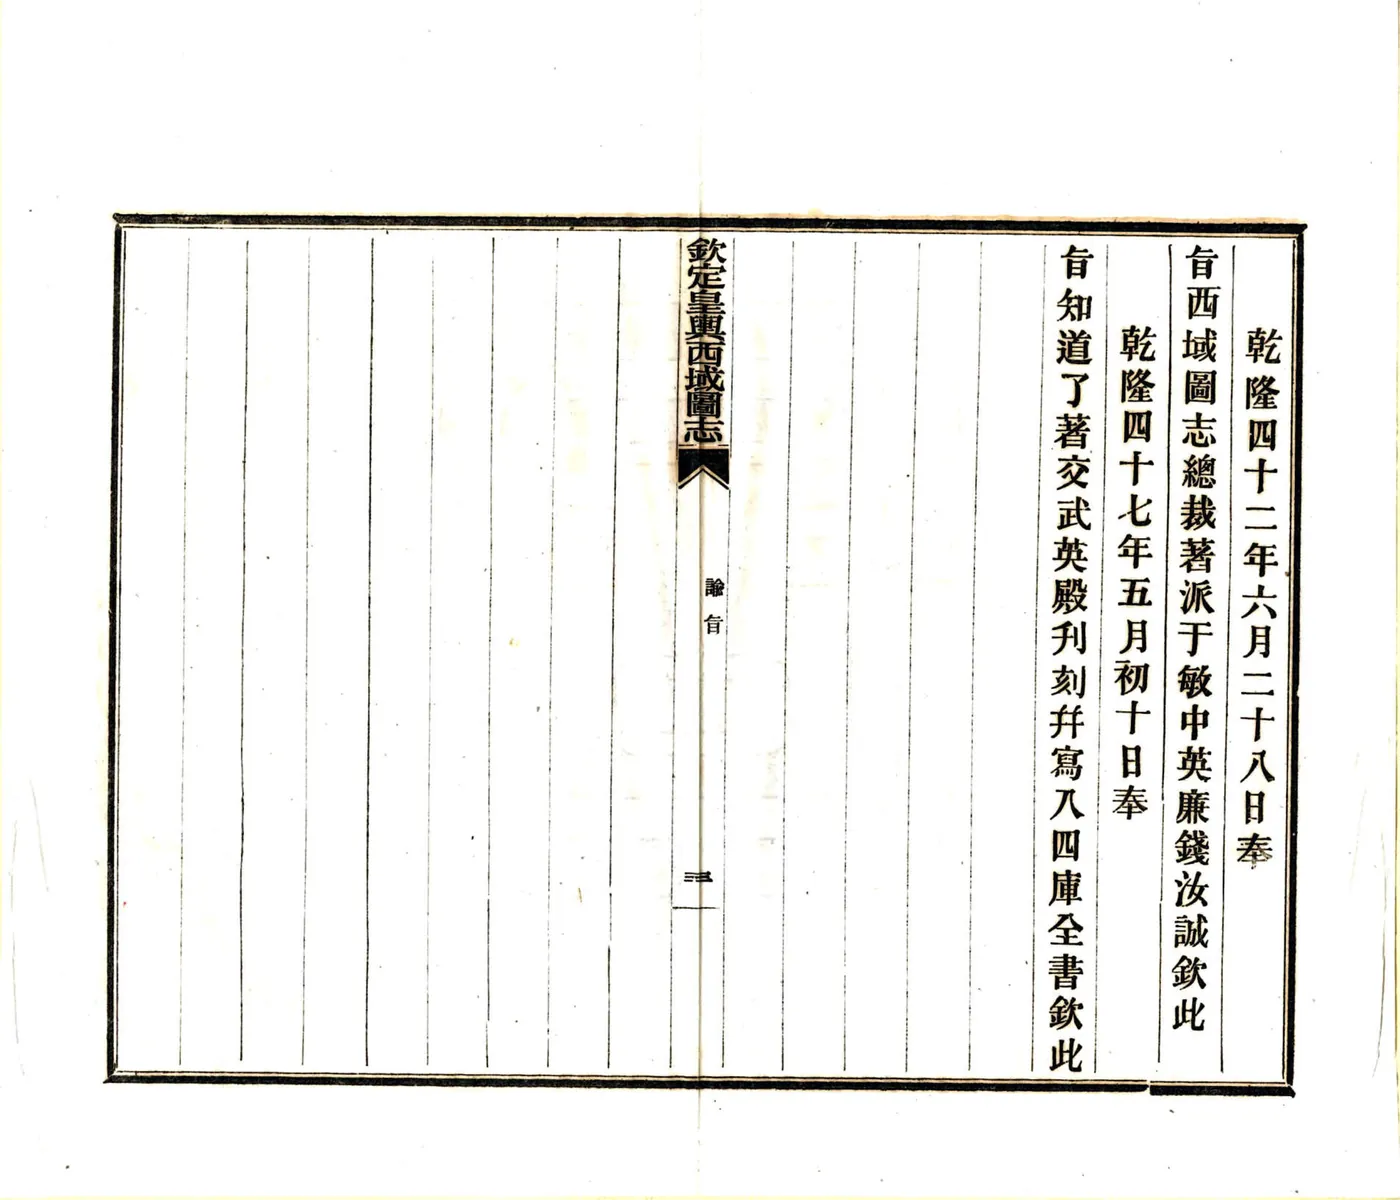 乾隆四十二年六月二十八日奉
旨西域圖志總裁著派于敏中英廉錢汝誠欽此
乾隆四十七年五月初十日奉
旨知道了著交武英殿刋刻幷寫入四庫全書欽此
欽定皇輿西域圖志
諭旨
三